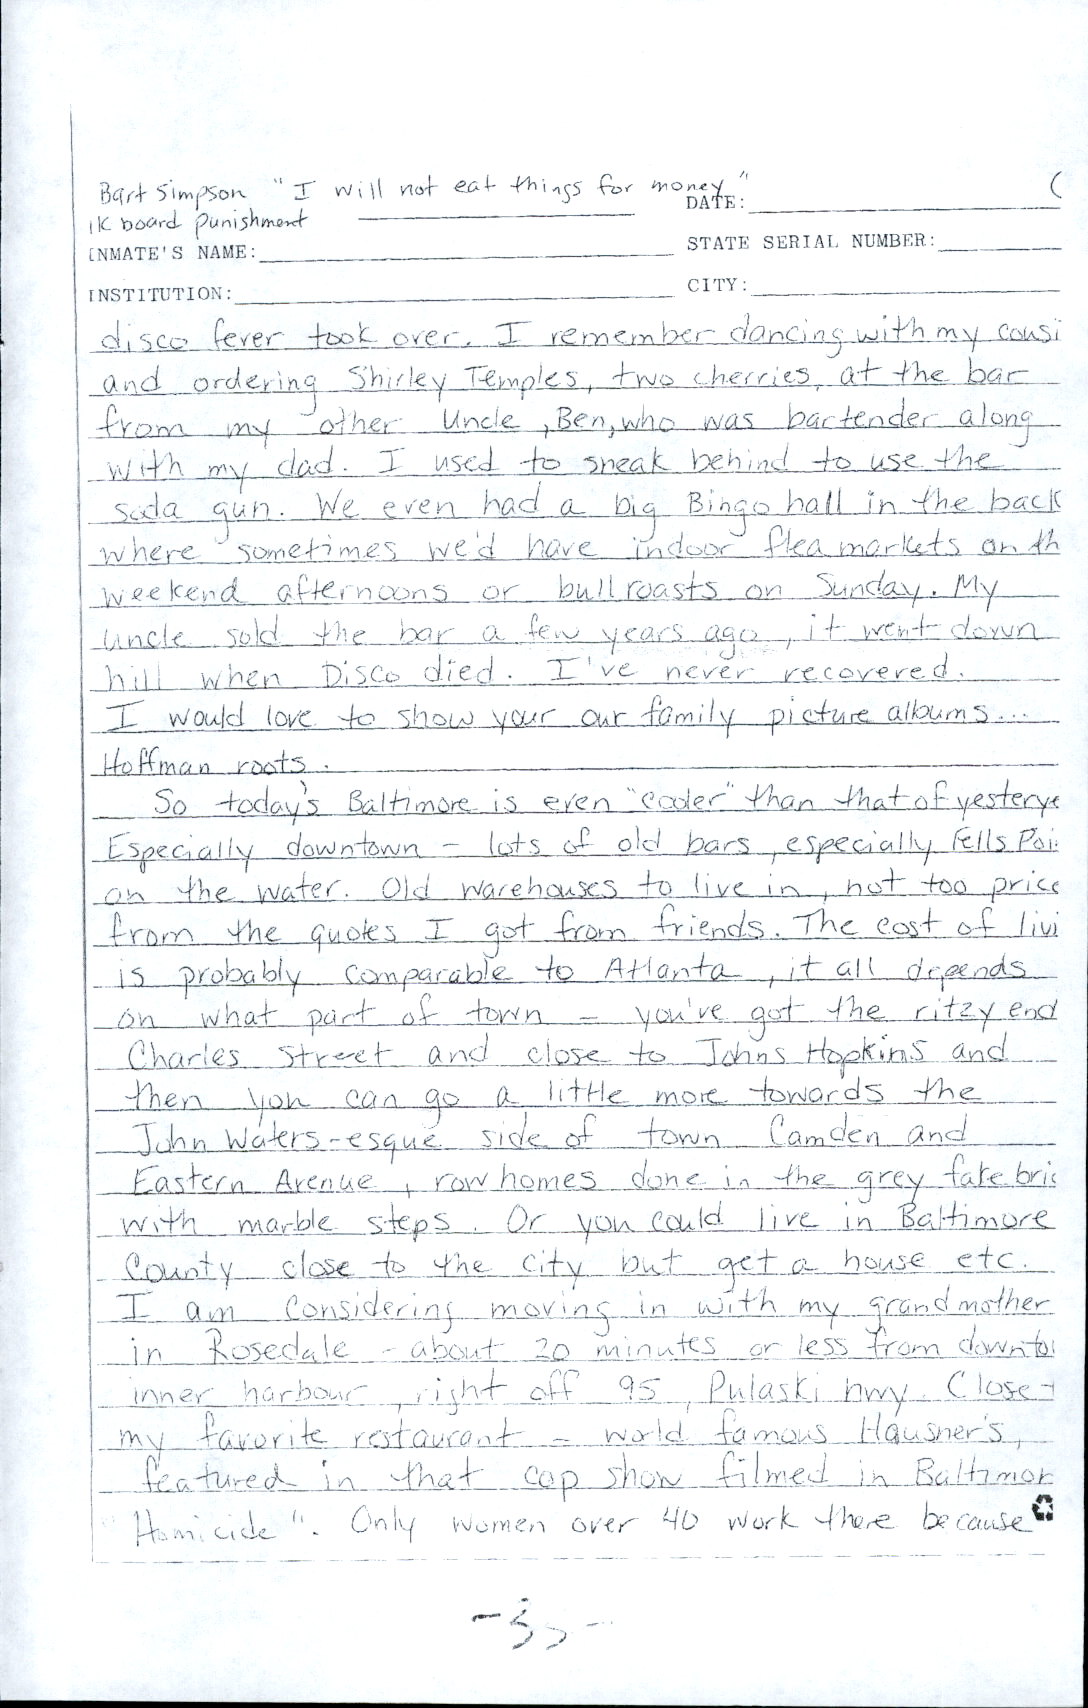 Bart Simpson "I will not eat things for money"
lk board punishment
DATE:
INMATE'S NAME:
STATE SERIAL NUMBER:
INSTITUTION:
CITY:
disco fever took over. I remember dancing with my cousi
and ordering Shirley Temples, two cherries, at the bar
from my other Uncle, Ben, who was bartender along
with my dad. I used to sneak behind to use the
soda gun. We even had a big Bingo hall in the back
where sometimes we'd have indoor flea markets on th
weekend afternoons or bull roasts on Sunday. My
uncle sold the bar a few years ago, it went down
hill when Disco died. I've never recovered.
I would love to show your our family picture albums...
Hoffman roots.
So today's Baltimore is even "cooler" than that of yesterye
Especially downtown - lots of old bars, especially Fells Poi
on the water. Old warehouses to live in, not too price
from the quotes I got from friends. The cost of livi
is probably comparable to Atlanta, it all depends
on what part of town - you've got the ritzy end
Charles Street and close to Johns Hopkins and
then you can go a little more towards the
John Waters-esque side of town Camden and
Eastern Avenue, row homes done in the grey fake bric
with marble steps. Or you could live in Baltimore
County close to the city but get a house etc.
I am considering moving in with my grandmother
in Rosedale - about 20 minutes or less from downto
inner harbour, right off 95, Pulaski hwy. Close
my favorite restaurant - world famous Hausner's,
featured in that cop show filmed in Baltimor
"Homicide". Only women over 40 work there because